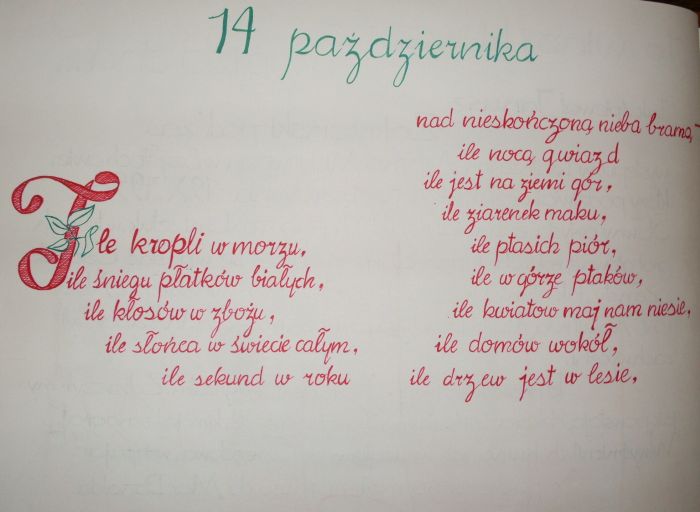 14 października
Ile kropli w morzu,
ile śniegu płatków białych,
ile kłosów w zbożu,
ile słońca w świecie całym,
ile sekund w roku
nad nieskończoną nieba bramą,
ile nocą gwiazd
ile jest na ziemi gór,
ile ziarenek maku,
ile ptasich piór,
ile w górze ptaków,
ile kwiatow maj nam niesie,
ile domów wokół,
ile drzew jest w lesie,